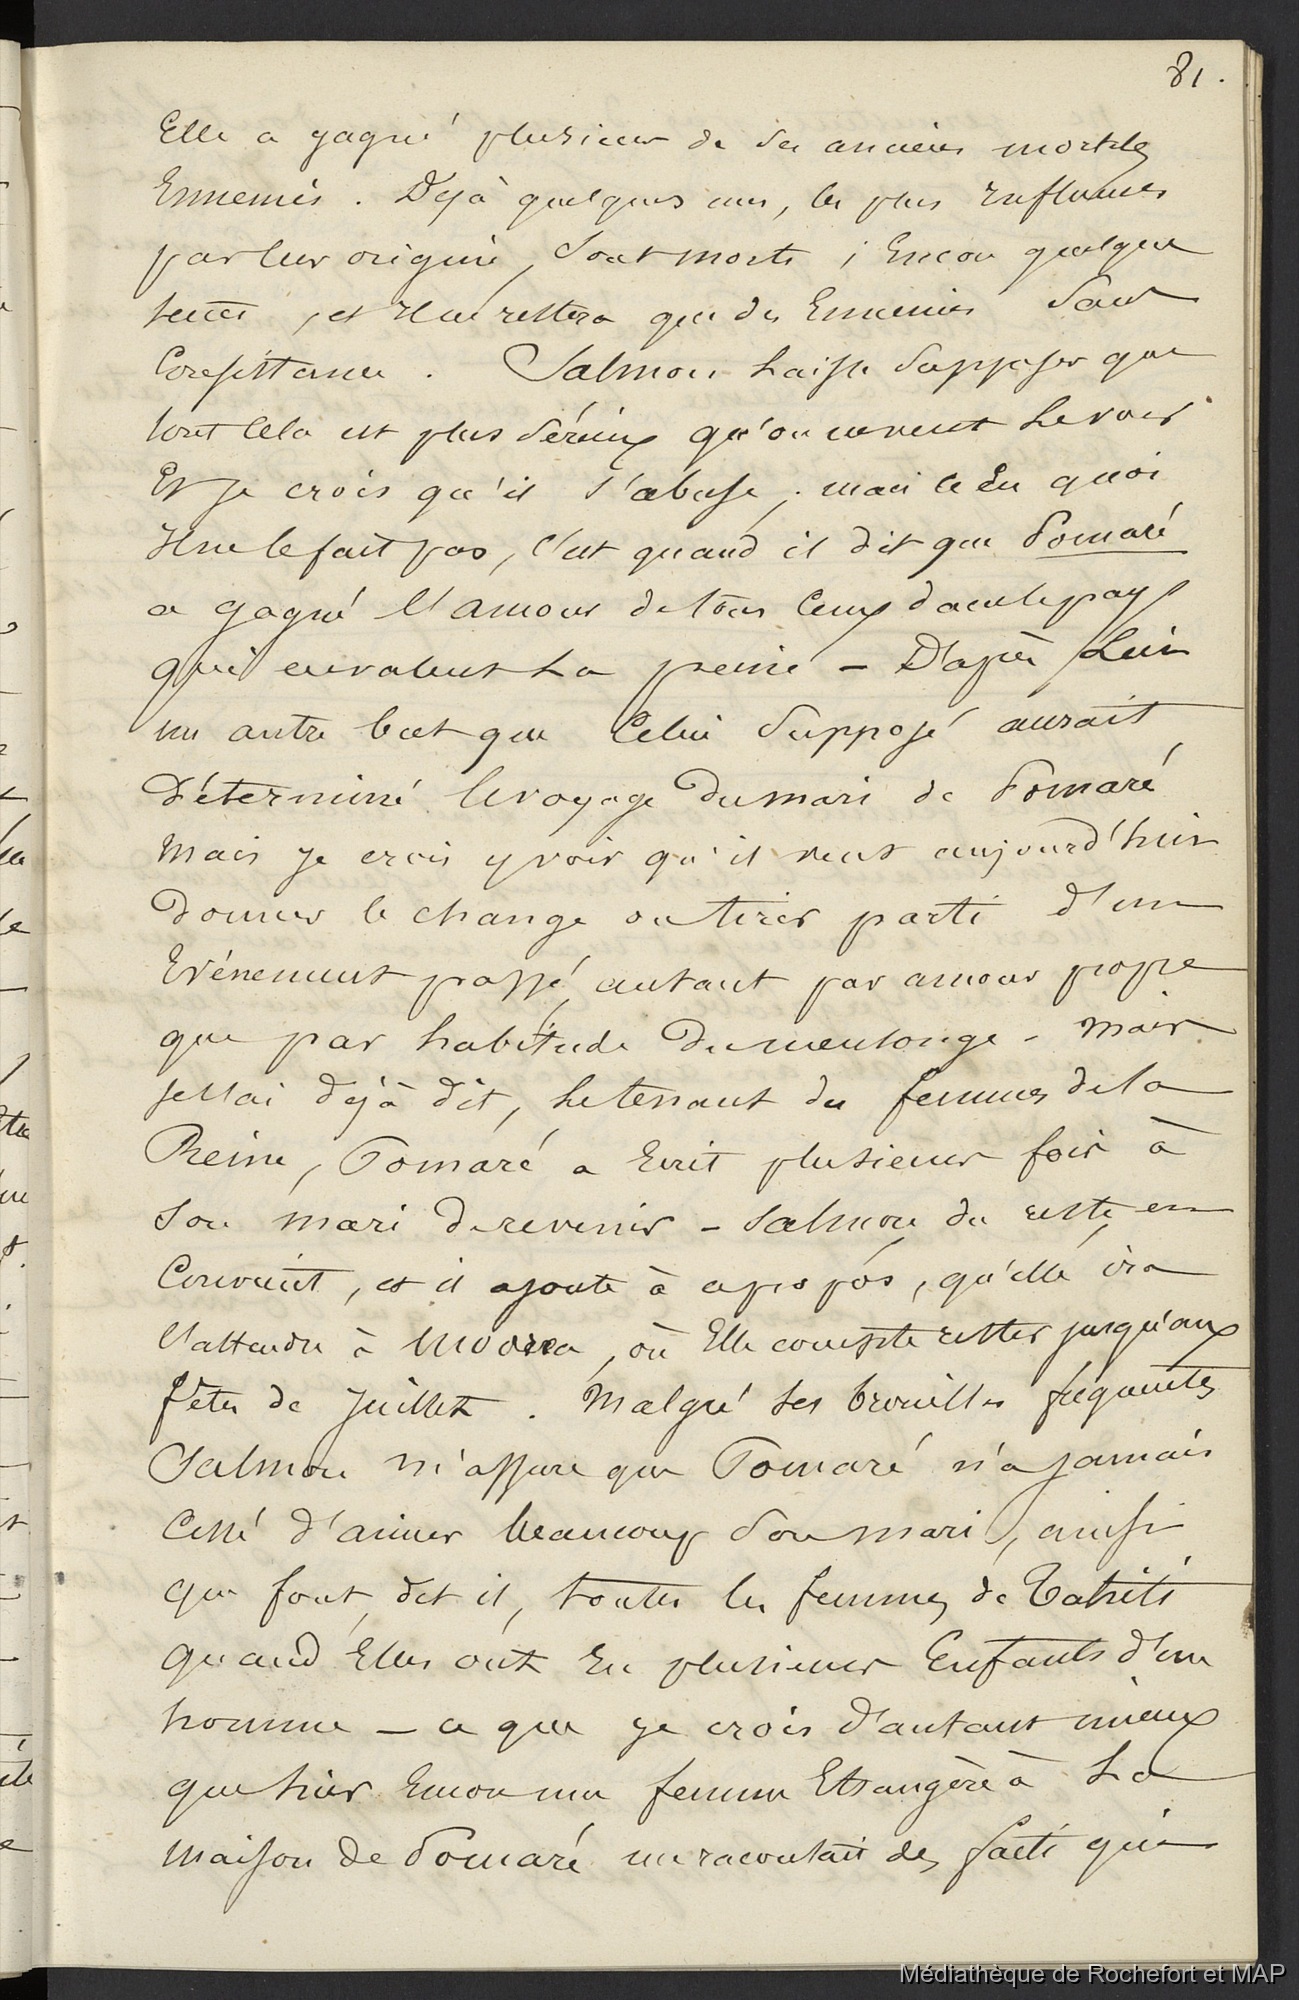 81.
Elle a gagné plusieurs de ses anciens mortels
Ennemis. Déjà quelques uns, les plus influents
par leur origine, sont morts ; Encore quelque
temps, et il ne restera que des Ennemis sans
Consistance. Salmon laisse supposer que
tout cela est plus sérieux qu'on ne veut le voir
Et je crois qu'il s'abuse, mais ce en quoi
Il ne le fait pas, c'est quand il dit que Pomaré
a gagné l'amour de tous ceux dans le pays
qui en valent la peine - D'après lui
un autre but que celui supposé aurait
Déterminé le voyage du mari de Pomaré
Mais je crois y voir qu'il veut aujourd'hui
Donner le change ou tirer parti d'un
Evénement passé, autant par amour propre
que par habitude du mensonge - Mais
je l'ai déjà dit, le tenant des femmes de la
Reine, Pomaré a Ecrit plusieurs fois à
son mari de revenir - Salmon du reste en
Convient, et il ajoute à ce propos, qu'elle ira
l'attendre à Moorea, où Elle compte rester jusqu'aux
fêtes de Juillet. Malgré ses brouilles fréquentes
Salmon m'assure que Pomaré n'a jamais
Cessé d'aimer beaucoup son mari, ainsi
que font, dit il, toutes les femmes de Tahiti
quand Elles ont Eu plusieurs Enfants d'un
homme - ce que je crois d'autant mieux
que hier Encore une femme Etrangère à la
maison de Pomaré me racontait des faits qui
Médiathèque de Rochefort et MAP